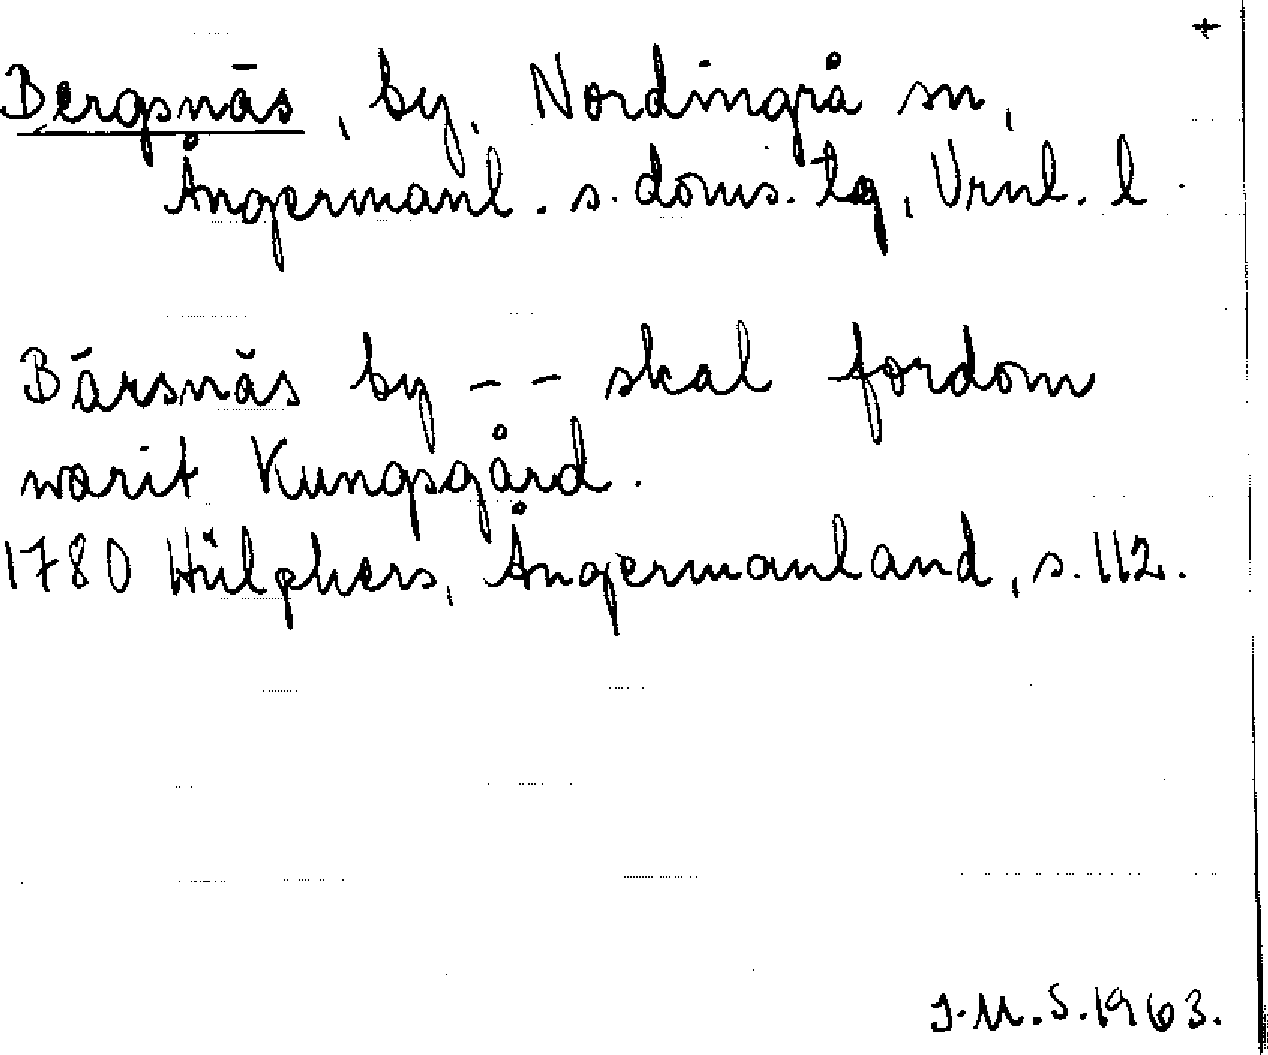 +
Bergsnäs, by, Nordingrå sn,
Ångermanl. s. doms. tg, Vrnl. l.
Bärsnäs by - - skal fordom
warit Kungsgård.
1780 Hülphers, Ångermanland, s. 112.
J.M.S. 1963.